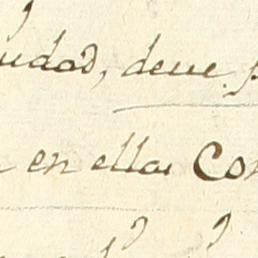 udad, deve p
en ella Con